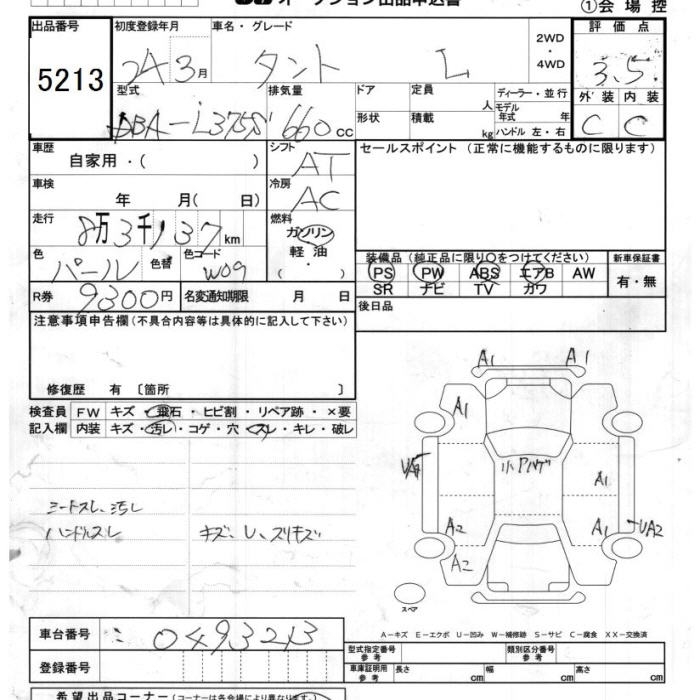 オークション出品申込書
①会場控
出品番号 初度登録年月 車名・グレード 評価点
5213 24 3月 タント L 2WD・4WD 3.5
型式 排気量 ドア 定員 人 ディーラー・並行 外装 内装
DBA-L375S 660cc 形状 積載 kg モデル年式 年 ハンドル 左・右 C C
車歴 シフト セールスポイント(正常に機能するものに限ります)
自家用・( ) AT
車検 冷房
年 月(日) AC
走行 燃料
8万3千137km ガソリン
軽油
( ・ )
色 色替 色コード 装備品(純正品に限り○をつけてください) 新車保証書
パール W09 PS PW ABS エアB AW 有・無
SR ナビ TV カワ
R券 9300円 名変通知期限 月 日 後日品
注意事項申告欄(不具合内容等は具体的に記入して下さい)
修復歴 有 〔箇所 〕
検査員 FW キズ・飛石・ヒビ割・リペア跡・×要
記入欄 内装 キズ・汚レ・コゲ・穴・スレ・キレ・破レ
シートスレ、汚レ
ハンドルスレ キズ、U、スリキズ
A1 A1
A1
小アルゲ
A1
A2 A1 UA2
A2
スペア
A-キズ E-エクボ U-凹み W-補修跡 S-サビ C-腐食 XX-交換済
車台番号 : 0493243
登録番号
型式指定番号 参考 類別区分番号 参考
車庫証明用 参考 長さ cm 幅 cm 高さ cm
希望出品コーナー(コーナーは各会場により異なります。)